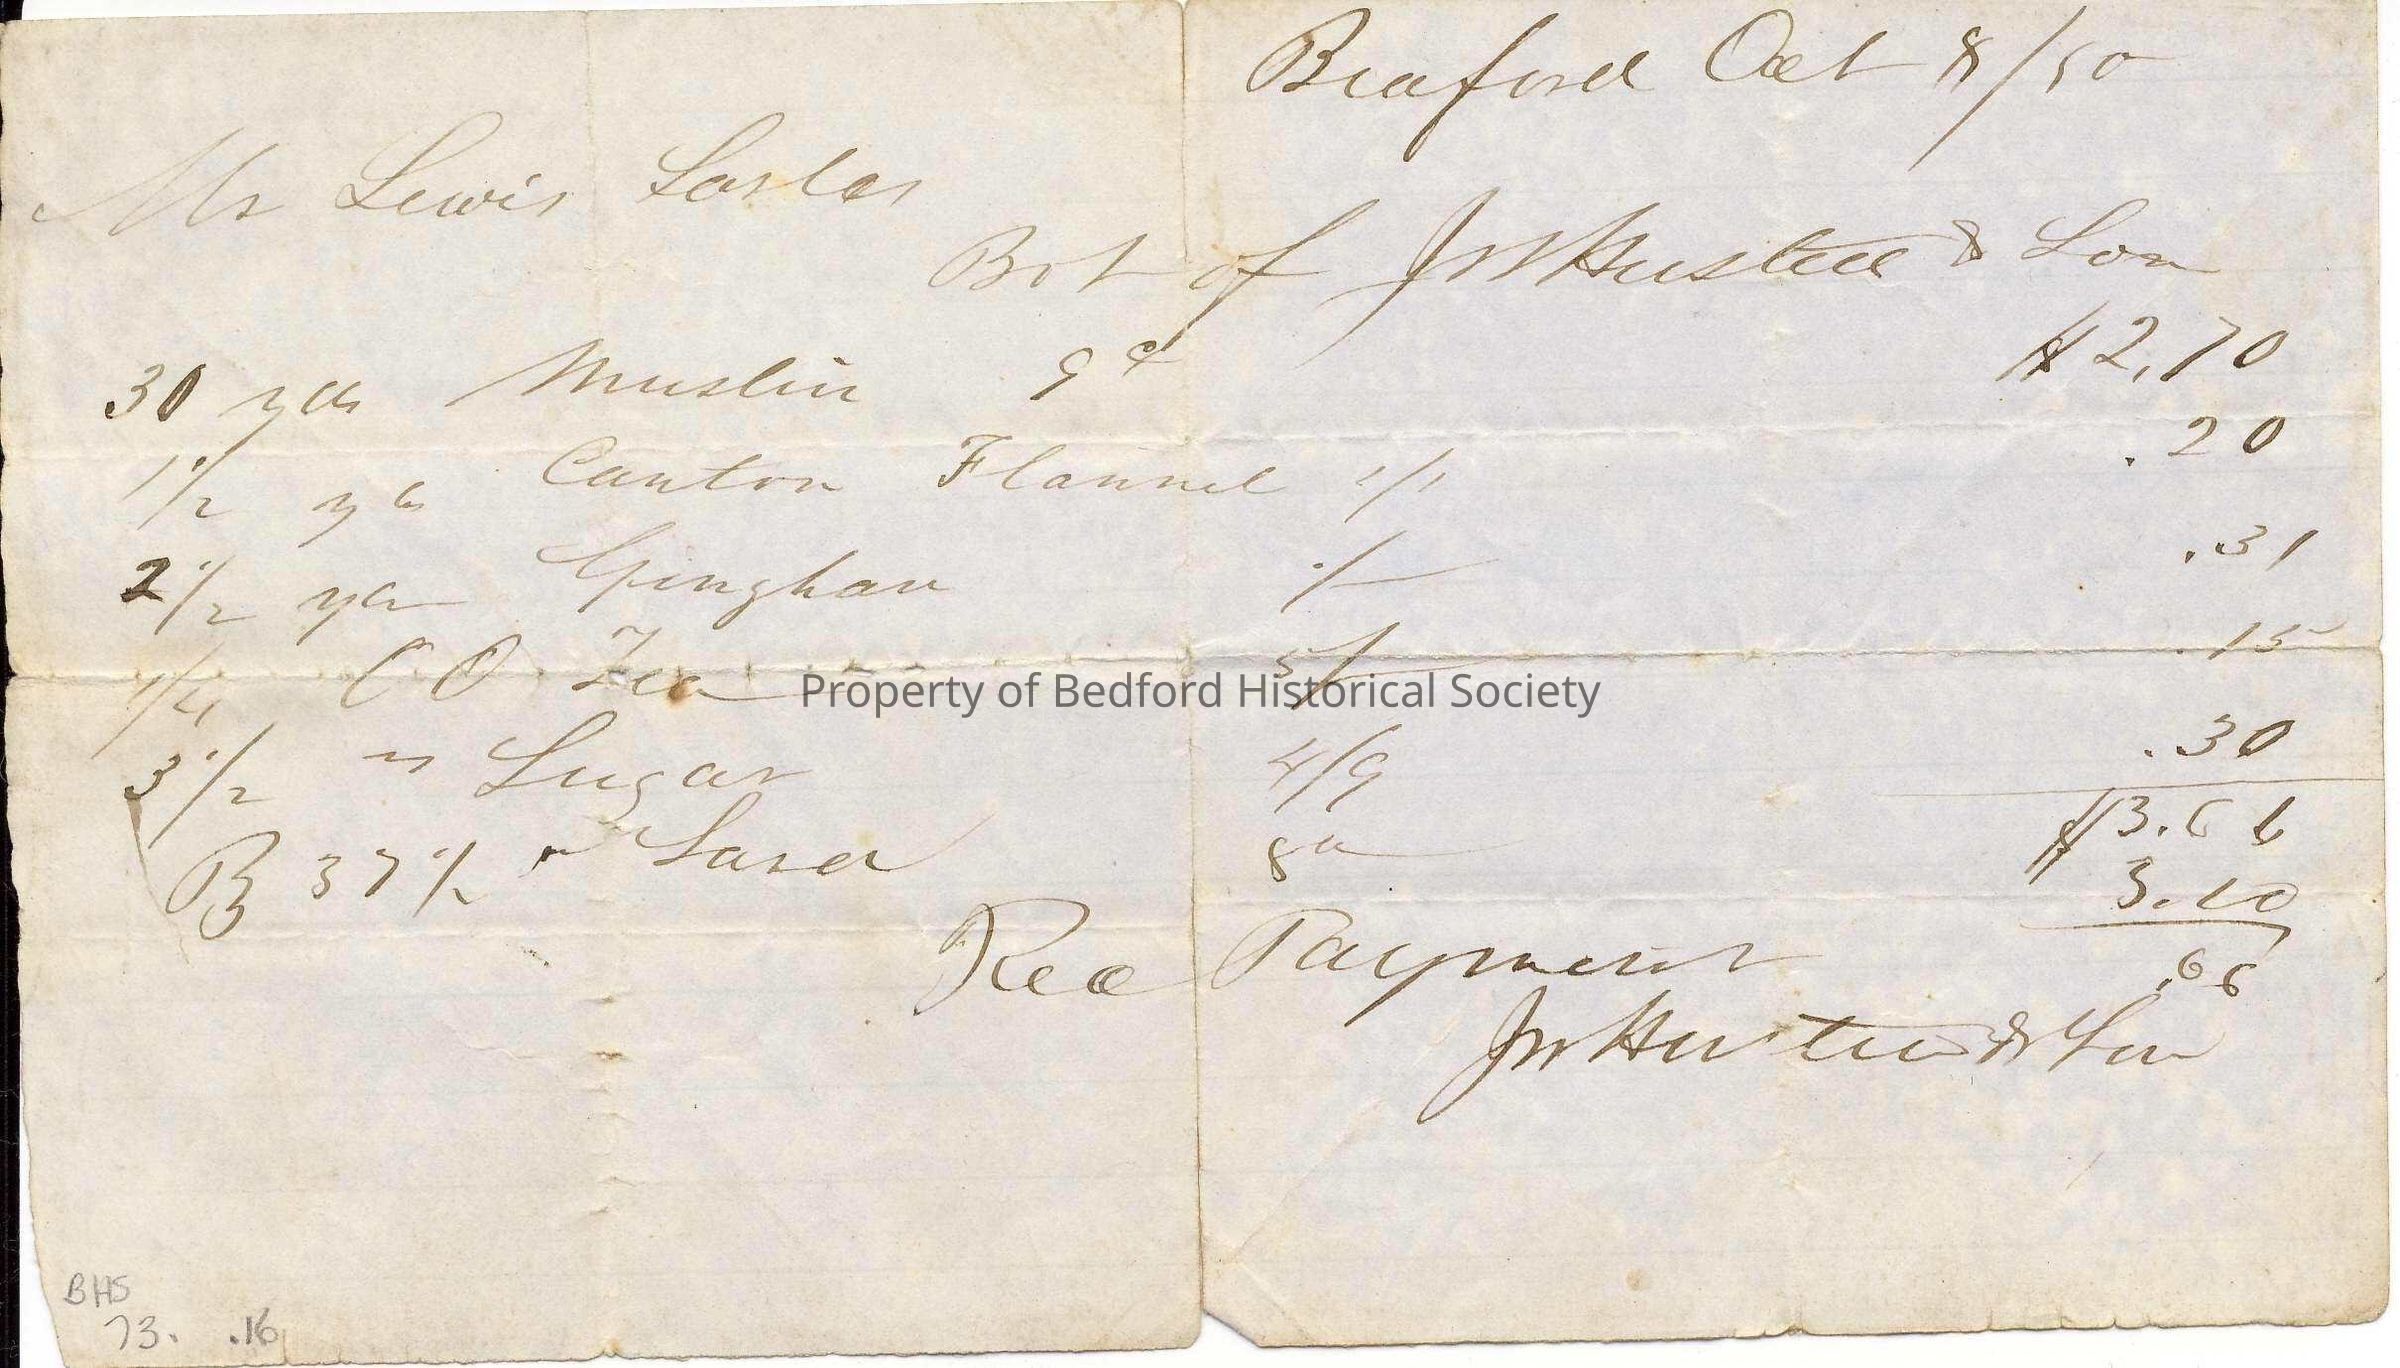 Bedford Oct 8/50
Mr Lewis Sarles
Bot of J W Husted & Son
30 yds Muslin 9d $2,70
1 1/2 yds Canton Flannel 1/1 .20
2 1/2 yds Gingham 1/ .31
1/4 O O Tea 5/ .15
3 1/2 " Sugar 4/9 .30
$3.66
B 37 1/2 " Lard 8d 3.10
.66
Rec Payment
J W Husted & Son
Property of Bedford Historical Society
BHS
73. .16